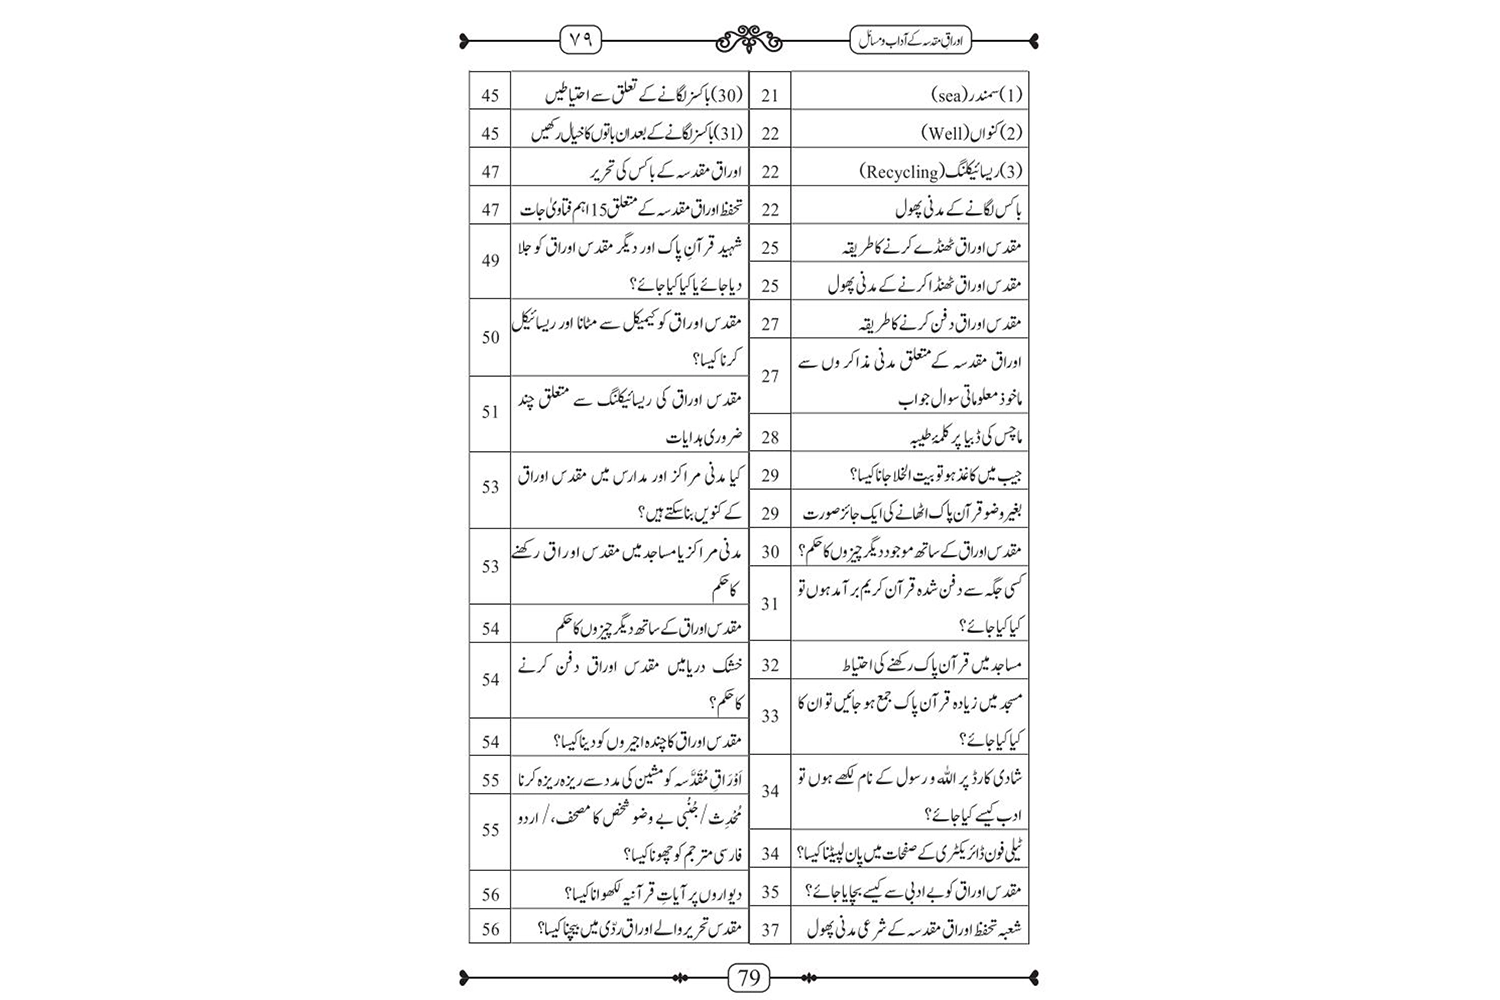 اوراقِ مقدسہ کے آداب و مسائل
٧٩
(1) سمندر (sea) 21
(2) کنواں (Well) 22
(3) ریسائیکلنگ (Recycling) 22
باکس لگانے کے مدنی پھول 22
مقدس اوراق ٹھنڈے کرنے کا طریقہ 25
مقدس اوراق ٹھنڈا کرنے کے مدنی پھول 25
مقدس اوراق دفن کرنے کا طریقہ 27
اوراق مقدسہ کے متعلق مدنی مذاکروں سے
ماخوذ معلوماتی سوال جواب 27
ماچس کی ڈبیا پر کلمۂ طیبہ 28
جیب میں کاغذ ہو تو بیت الخلا جانا کیسا؟ 29
بغیر وضو قرآن پاک اٹھانے کی ایک جائز صورت 29
مقدس اوراق کے ساتھ موجود دیگر چیزوں کا حکم؟ 30
کسی جگہ سے دفن شدہ قرآن کریم برآمد ہوں تو
کیا کیا جائے؟ 31
مساجد میں قرآن پاک رکھنے کی احتیاط 32
مسجد میں زیادہ قرآن پاک جمع ہو جائیں تو ان کا
کیا کیا جائے؟ 33
شادی کارڈ پر اللہ و رسول کے نام لکھے ہوں تو
ادب کیسے کیا جائے؟ 34
ٹیلی فون ڈائریکٹری کے صفحات میں پان لپیٹنا کیسا؟ 34
مقدس اوراق کو بے ادبی سے کیسے بچایا جائے؟ 35
شعبہ تحفظ اوراق مقدسہ کے شرعی مدنی پھول 37
(30) باکسز لگانے کے تعلق سے احتیاطیں 45
(31) باکسز لگانے کے بعد ان باتوں کا خیال رکھیں 45
اوراق مقدسہ کے باکس کی تحریر 47
تحفظ اوراق مقدسہ کے متعلق 15 اہم فتاویٰ جات 47
شہید قرآنِ پاک اور دیگر مقدس اوراق کو جلا
دیا جائے یا کیا کیا جائے؟ 49
مقدس اوراق کو کیمیکل سے مٹانا اور ریسائیکل
کرنا کیسا؟ 50
مقدس اوراق کی ریسائیکلنگ سے متعلق چند
ضروری ہدایات 51
کیا مدنی مراکز اور مدارس میں مقدس اوراق
کے کنویں بنا سکتے ہیں؟ 53
مدنی مراکز یا مساجد میں مقدس اوراق رکھنے
کا حکم 53
مقدس اوراق کے ساتھ دیگر چیزوں کا حکم 54
خشک دریا میں مقدس اوراق دفن کرنے
کا حکم؟ 54
مقدس اوراق کا چندہ اجیروں کو دینا کیسا؟ 54
اَوْرَاقِ مُقَدَّسہ کو مشین کی مدد سے ریزہ ریزہ کرنا 55
مُحْدِث/جُنُبی بے وضو شخص کا مصحف، /اردو
فارسی مترجم کو چھونا کیسا؟ 55
دیواروں پر آیاتِ قرآنیہ لکھوانا کیسا؟ 56
مقدس تحریر والے اوراق ردّی میں بیچنا کیسا؟ 56
79